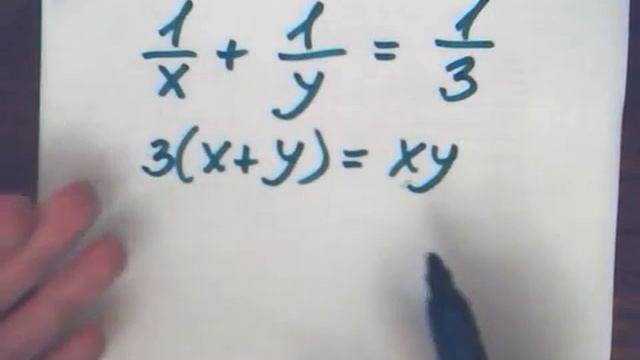 1/x + 1/y = 1/3
3(x+y) = xy